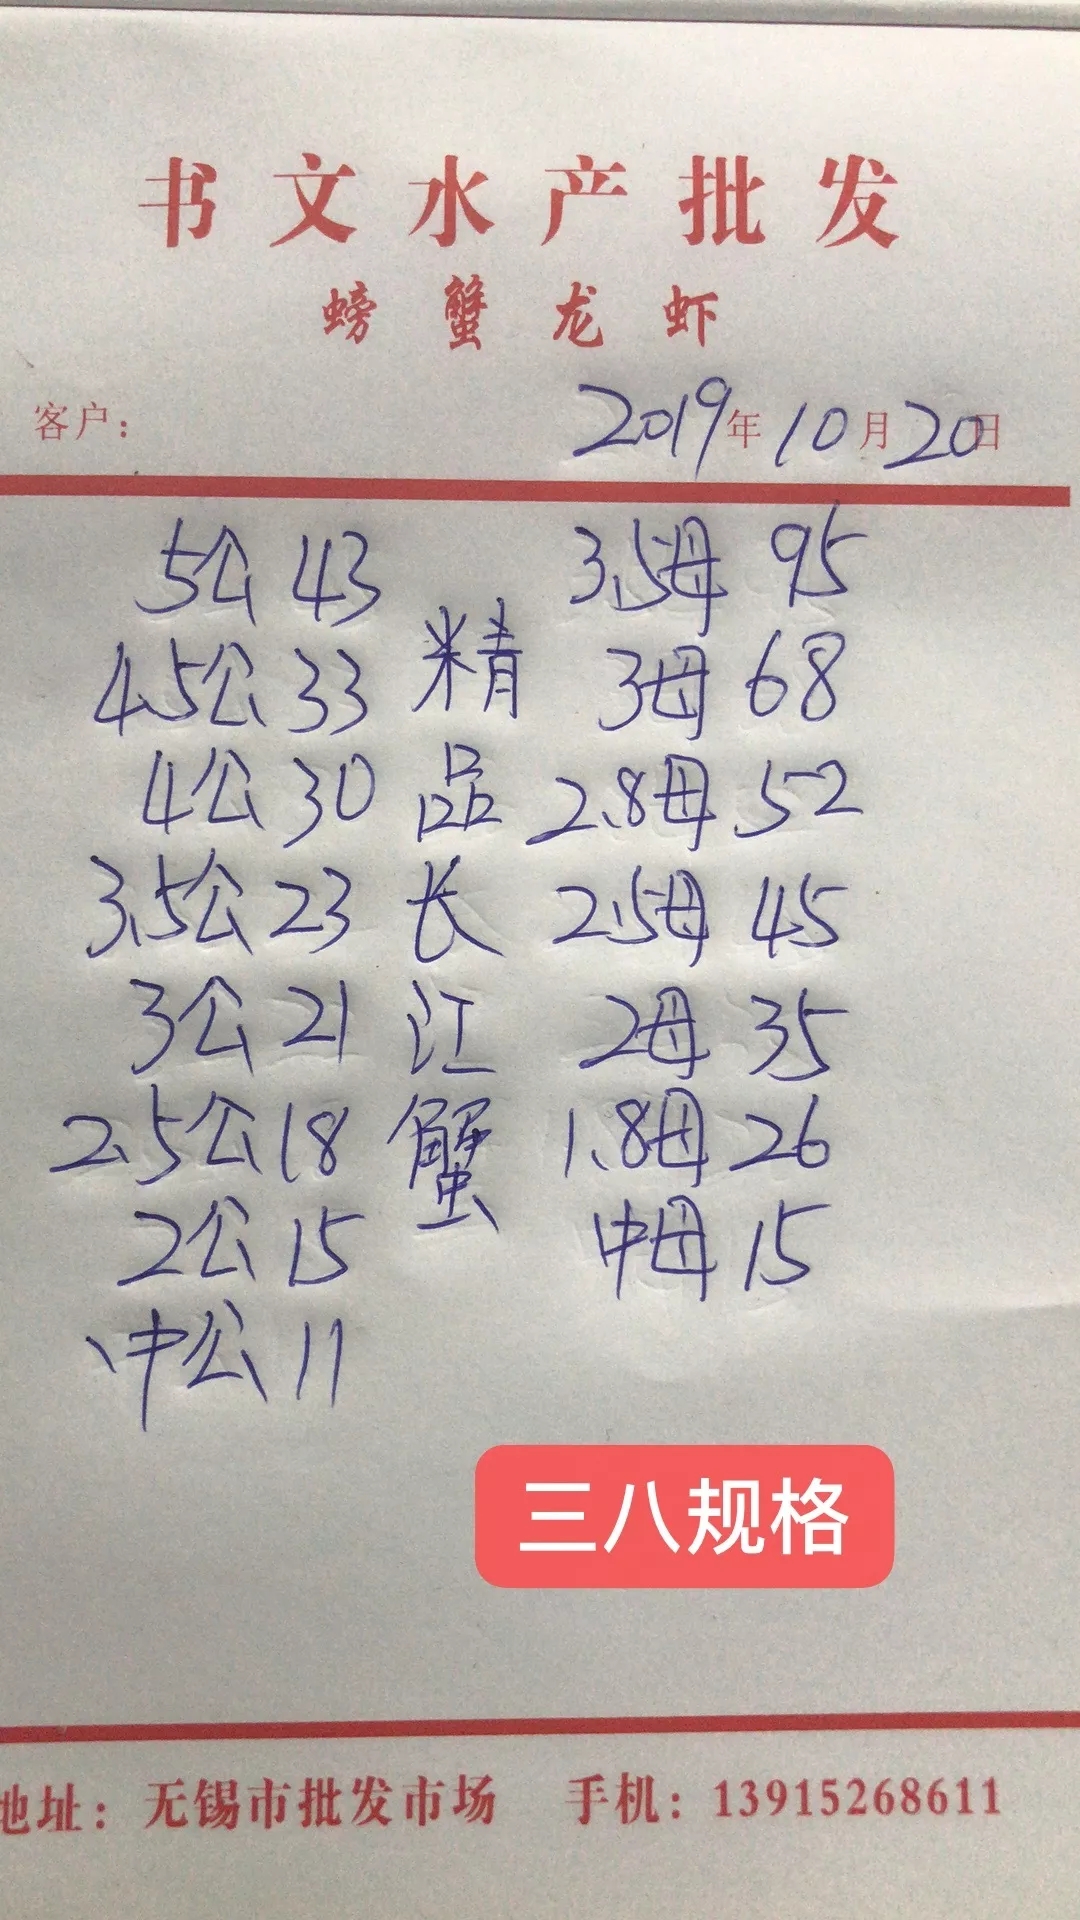 书文水产批发
螃蟹龙虾
客户： 2019年10月20日
5公 43
4.5公 33
4公 30
3.5公 23
3公 21
2.5公 18
2公 15
中公 11
精品长江蟹
3.5母 95
3母 68
2.8母 52
2.5母 45
2母 35
1.8母 26
中母 15
三八规格
地址：无锡市批发市场 手机：13915268611